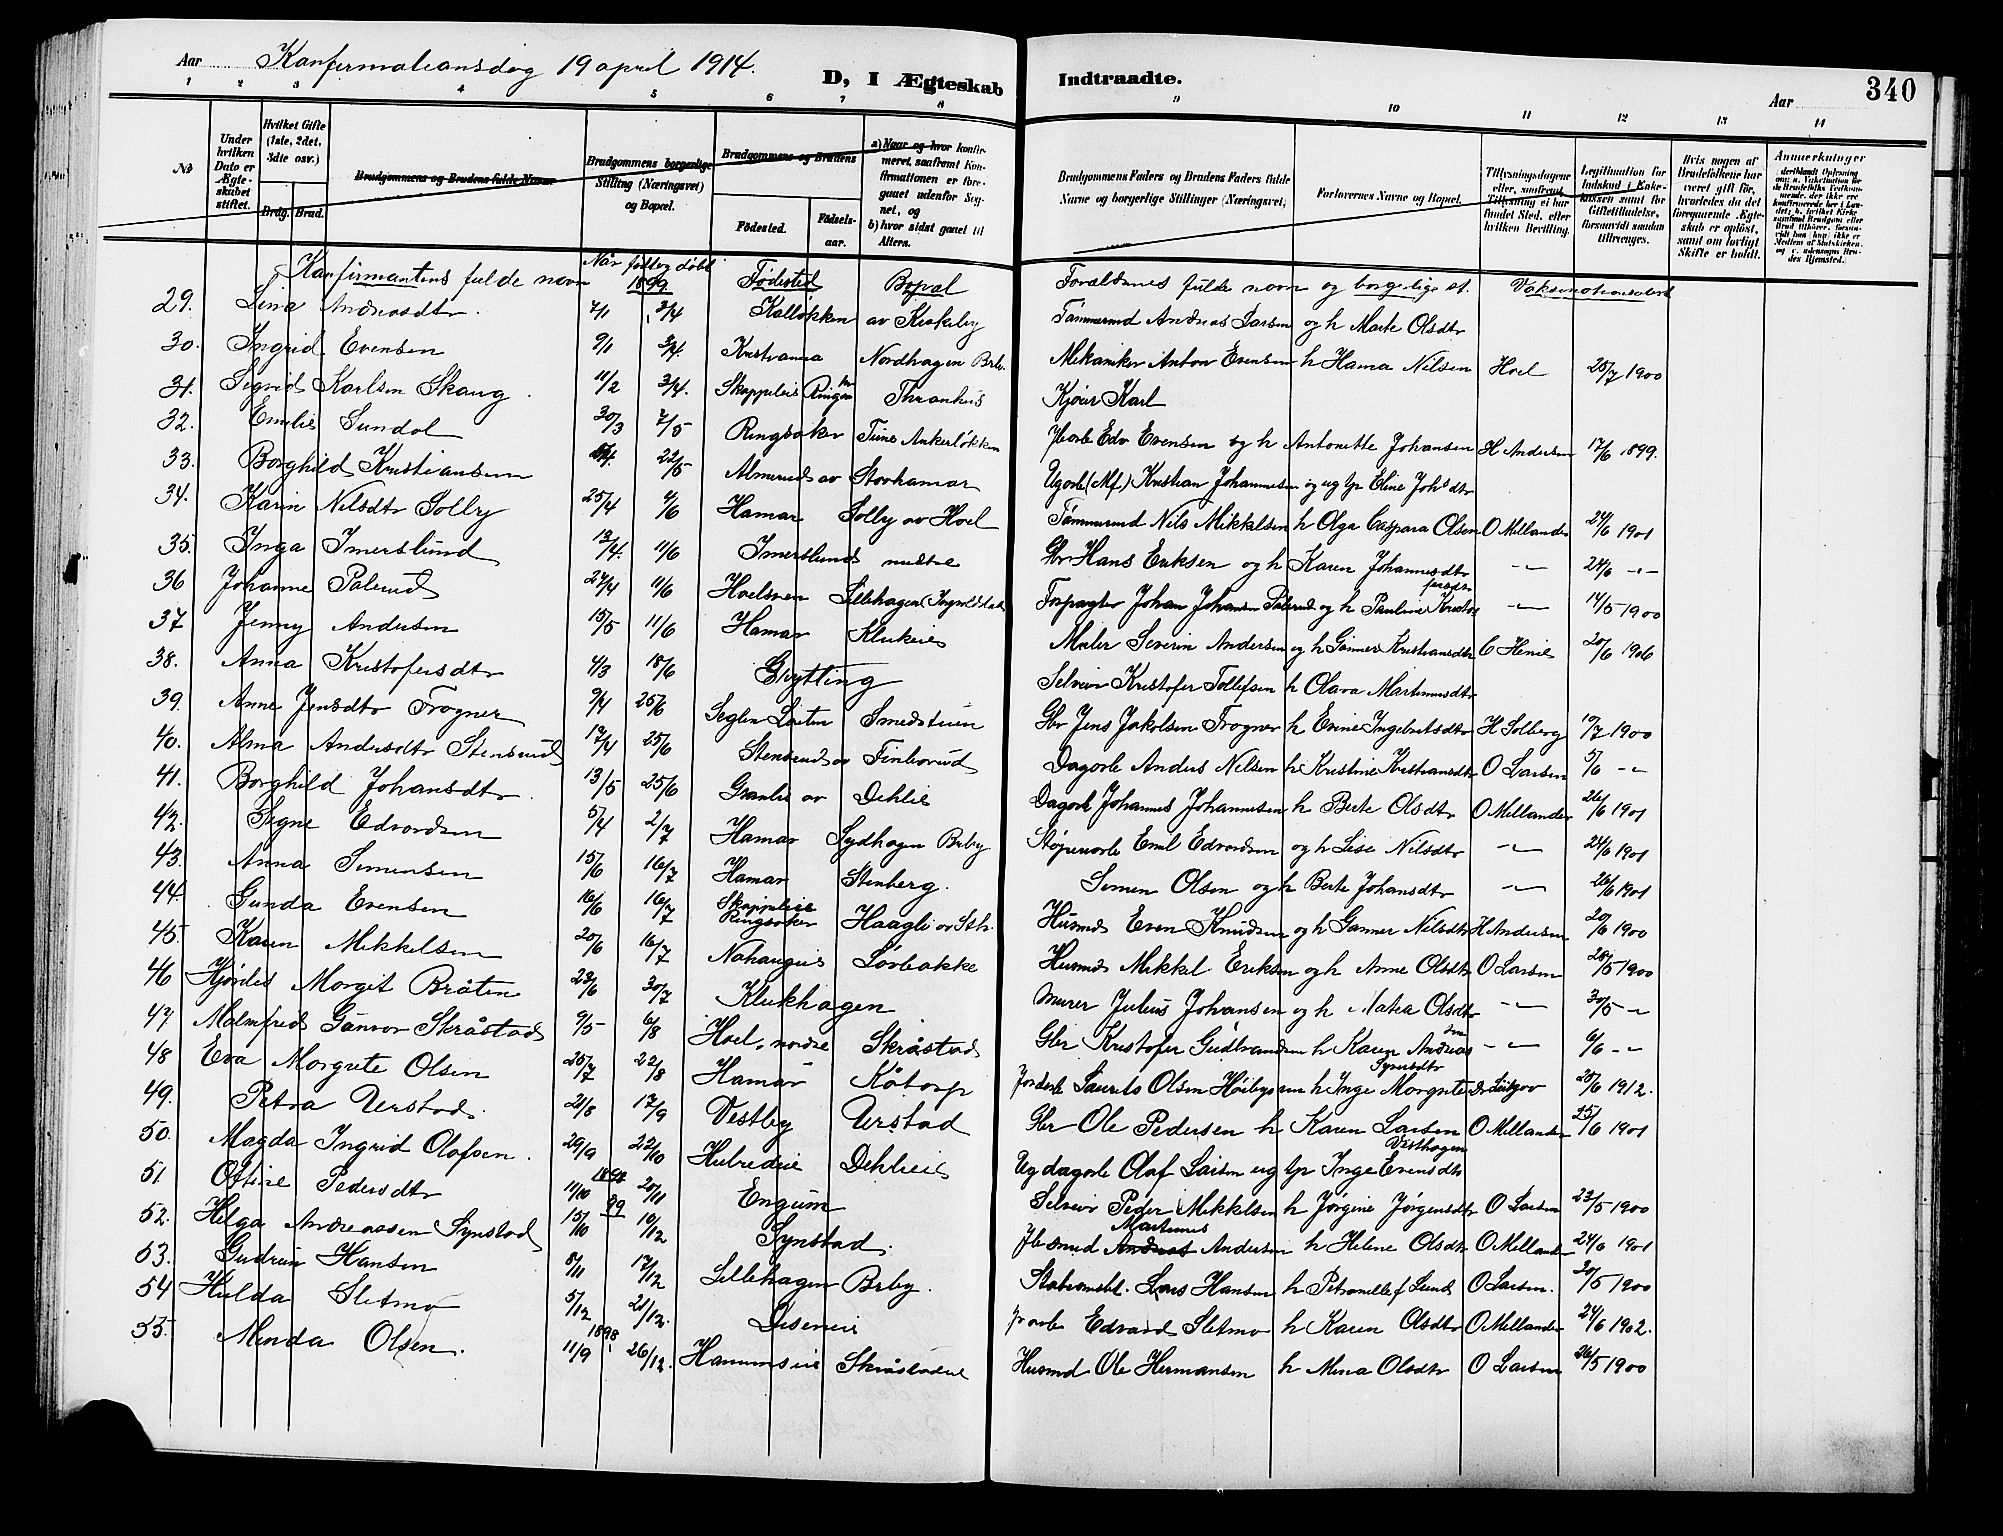 Aar Konfirmationsdag 19 april 1914.
D, I Ægteskab Indtraadte. Aar 340
1 2 3 4 5 6 7 8 9 10 11 12 13 14
No
Under hvilken Dato er Ægteskabet stiftet.
Hvilket Gifte (1ste, 2det, 3dte osv.)
Brdg. Brud.
Brudgommens og Brudens fulde Navne
Brudgommens borgerlige Stilling (Næringsvei) og Bopæl.
Brudgommens og Brudens
Fødested. Fødselsaar.
a) Naar og hvor konfirmeret, saafremt Konfirmationen er foregaaet udenfor Sognet, og
b) hvor sidst gaaet til Alters.
Brudgommens Faders og Brudens Faders fulde Navne og borgerlige Stillinger (Næringsvei)
Forlovernes Navne og Bopæl.
Tillysningsdagene eller, saafremt Tillysning ei har fundet Sted, efter hvilken Bevilling.
Legitimation for Indskud i Enkekassen samt for Giftetilladelse, forsaavidt saadan tiltrænges.
Hvis nogen af Brudefolkene har været gift før, hvorledes da det foregaaende Ægteskab er opløst, samt om lovligt Skifte er holdt.
Anmærkninger
Konfirmantens fulde navn Når født og døbt 1899 Fødested Bopæl Forældrenes fulde navn og borgerlige st. Vaksinationsattest
29. Lina Andreasdtr. 7/1 3/4 Kalløkken av Kirkeby Tømmermd Andreas Larsen og h Marte Olsdtr
30. Ingrid Evensen 9/1 3/4. Kristiania Nordhagen Brby. Mekaniker Anton Evensen h Hanna Nilsen Hoel 25/7 1900
31. Sigrid Karlsen Skaug. 11/2 3/4. Skappeleie Ringsaker Thranhus Kjører Karl
32. Emilie Sundal 30/3 7/5 Ringsaker Tune Ankerløkken Jborb Edv Evensen og h Antonette Johansen H Andersen 17/6 1899.
33. Borghild Kristiansen 22/5 Almerud av Storhamar Ugarb (Mf.) Kristian Johannesen og ug tp Eline Johsdtr
34. Karin Nilsdtr Solby 25/4 4/6 Hamar Solby av Hoel Tømmermd Nils Mikkelsen h Olga Caspara Olsen O Millander 24/6 1901
35. Inga Imerslund 13/4. 11/6 Imerslund nedtre Gbr Hans Eriksen og h Karen Johannesdtr -"- 24/6 -"-
36 Johanne Palerud 27/4 11/6 Hoelsven Lillehagen (Ingvoldstad Forpagter Johan Johansen Palerud og h Pauline Kristofersdtr -"- 14/5 1900
37 Jenny Andersen 15/5 11/6 Hamar Klukeie Maler Severin Andersen og h Gunner Kristiansdtr C Henie 20/6 1906
38. Anna Kristofersdtr 4/3 18/6 Grytting Selveier Kristofer Tollefsen h Olava Martinusdtr
39. Anne Jensdtr Frogner 9/4 25/6 Seglen Løiten Smedstuen Gbr Jens Jakobsen Frogner h Erine Ingebretsdtr H Solberg 10/7 1900
40. Alma Andersdtr Stensrud 17/4 25/6 Stensrud av Finborud Dagarb Anders Nilsen h Kristine Kristiansdtr O Larsen 5/6 -"-
41. Borghild Johansdtr. 13/5 25/6 Granlie av Dehlie Dagarb Johannes Johannesen h Berte Olsdtr O Millander 26/6 1901
42. Signe Edvardsen 5/4 2/7 Hamar Sydhagen Brby Støperarb Emil Edvardsen og h Lise Nilsdtr -"- 24/6 1901
43. Anna Simensen 15/6 16/7 Hamar Stenberg. Simen Olsen og h Berte Johansdtr -"- 26/6 1901
44. Gunda Evensen 16/6 16/7 Skappeleie Ringsaker Haagli av Sth. Husmd Even Knudsen og h Gunner Nilsdtr H Andersen 20/6 1900
45. Karen Mikkelsen 20/6 16/7 Nahaugeie Sørbakke Husmd Mikkel Eriksen og h Anne Olsdtr O Larsen 28/5 1900
46 Hjørdis Margit Bråten 23/6 30/7 Klukhagen Murer Julius Johansen og h Matea Olsdtr -"- 30/5 -"-
47 Malmfrid Gunvor Skråstad 9/5 6/8 Hoel, nordre Skråstad Gbr Kristofer Gudbrandsen h Karen Andreasdtr -"- 6/6 -"-
48 Eva Margrete Olsen 25/7 22/8 Hamar Kåtorp Jorderb Laurits Olsen Høibysen h Inga Margrete Synesdtr Dr Lützow 25/6 1912.
49. Petra Urstad. 21/8 17/9 Vestby Urstad Gbr Ole Pedersen h Karen Larsen O Millander 25/6 1901
50. Magda Ingrid Olafsen. 29/9 22/10 Hubredeie Dehlieie Ug dagarb Olaf Larsen ug tp Inga Evensdtr Vesthagen
51 Otine Pedersdtr 11/10 1898 20/11 Engum Selveier Peder Mikkelsen h Jørgine Jørgensdtr O Larsen 23/5 1900
52. Helga Andreassen Synstad 15/10 99 10/12 Synstad. Martinus Andersen h Helene Olsdtr O Millander 24/6 1901
53. Gudrun Hansen 8/11 17/12 Lillehagen Brby. Lars Hansen h Petronelle f Lund O Larsen. 20/5 1900
54 Hulda Sletmo 5/12 21/12. Diseneie Edvard Sletmo h Karen Olsdtr O Millander 24/6 1902.
55. Minda Olsen. 11/9 1898. 26/12. Hanumseie Skråstadeie Husmd Ole Hermansen h Mina Olsdtr O Larsen 26/5 1900